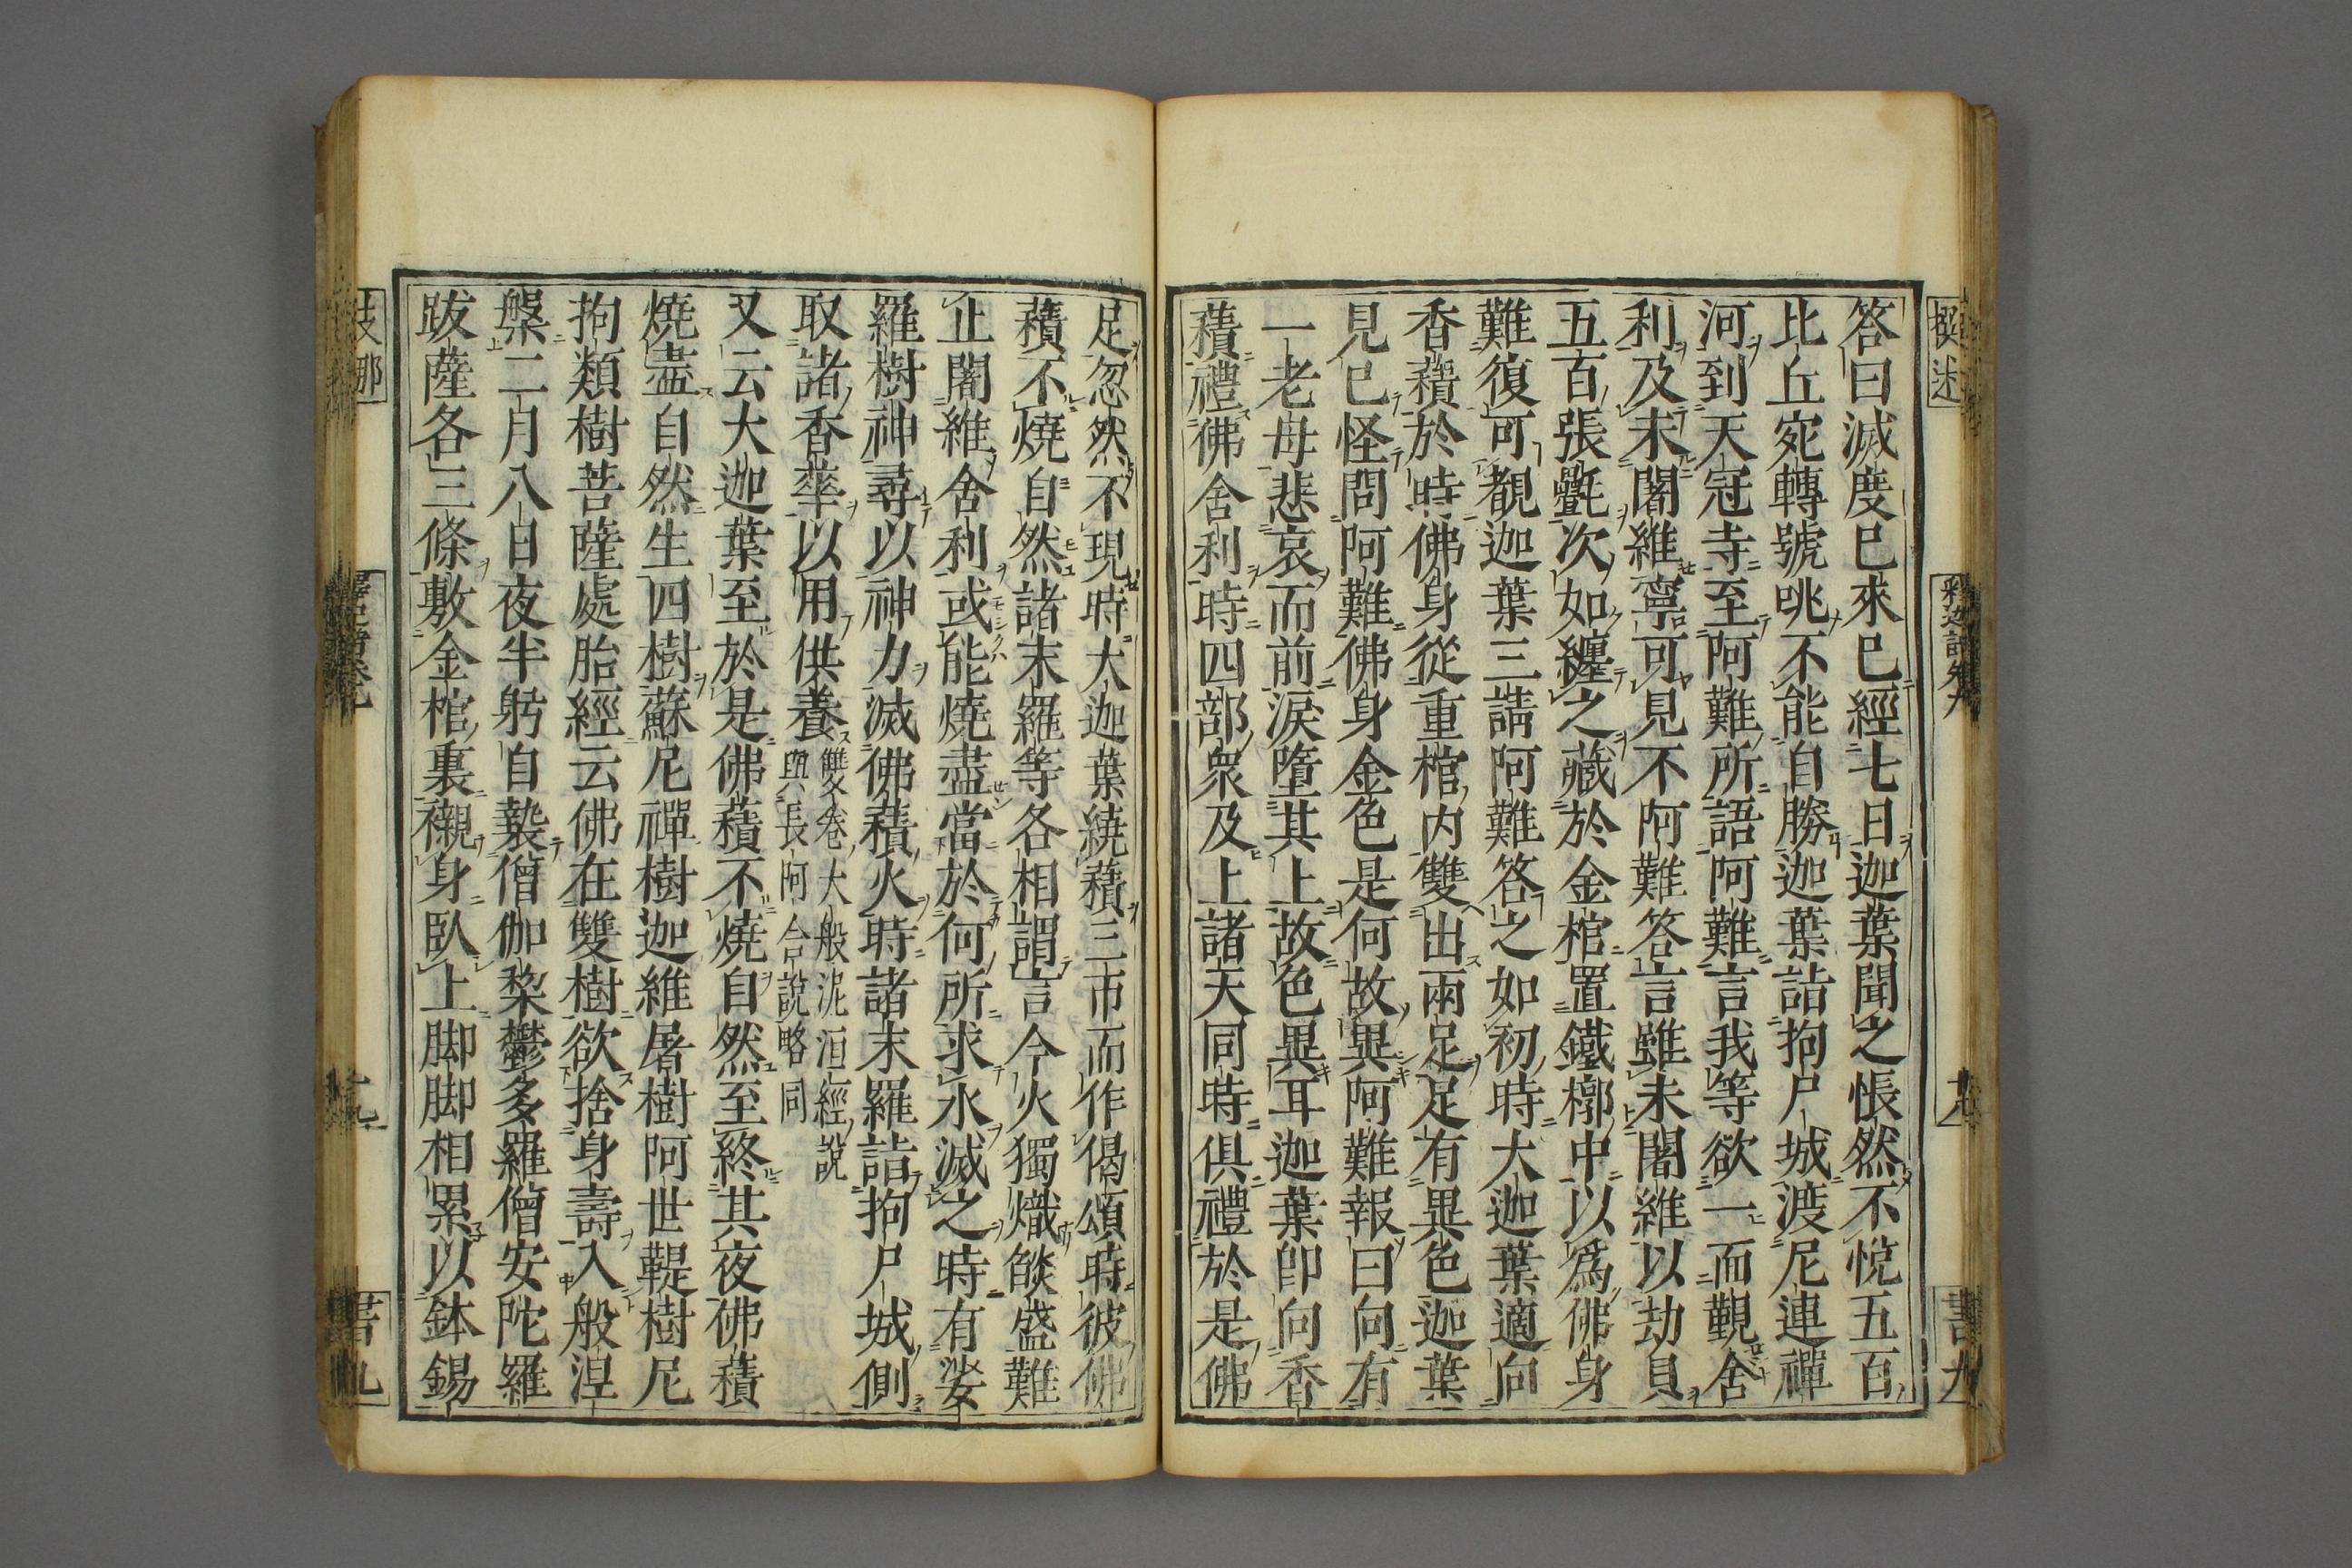 撰述
釋迦譜卷九
十九
書九
答曰滅度已來已經七日迦葉聞之悵然不悅五百
比丘宛轉號咷不能自勝迦葉詣拘尸城渡尼連禪
河到天冠寺至阿難所語阿難言我等欲一面覲舍
利及未闍維寧可見不阿難答言雖未闍維以劫貝
五百張㲲次如纏之藏於金棺置鐵槨中以為佛身
難復可覩迦葉三請阿難答之如初時大迦葉適向
香𧂐於時佛身從重棺内雙出兩足足有異色迦葉
見已怪問阿難佛身金色是何故異阿難報曰向有
一老母悲哀而前淚墮其上故色異耳迦葉即向香
𧂐禮佛舍利時四部衆及上諸天同時俱禮於是佛
足忽然不現時大迦葉繞𧂐三帀而作偈頌時彼佛
𧂐不燒自然諸末羅等各相謂言今火獨熾燄盛難
止闍維舍利或能燒盡當於何所求水滅之時有娑
羅樹神尋以神力滅佛𧂐火時諸末羅詣拘尸城側
取諸香華以用供養雙卷大般泥洹經說
與長阿含說略同
又云大迦葉至於是佛𧂐不燒自然至終其夜佛𧂐
燒盡自然生四樹蘇尼禪樹迦維屠樹阿世鞮樹尼
拘類樹菩薩處胎經云佛在雙樹欲捨身壽入般涅
槃二月八日夜半躬自襞僧伽棃鬱多羅僧安陀羅
跋薩各三條敷金棺裏襯身臥上脚脚相累以鉢錫
支那
釋迦譜卷九
十九
書九